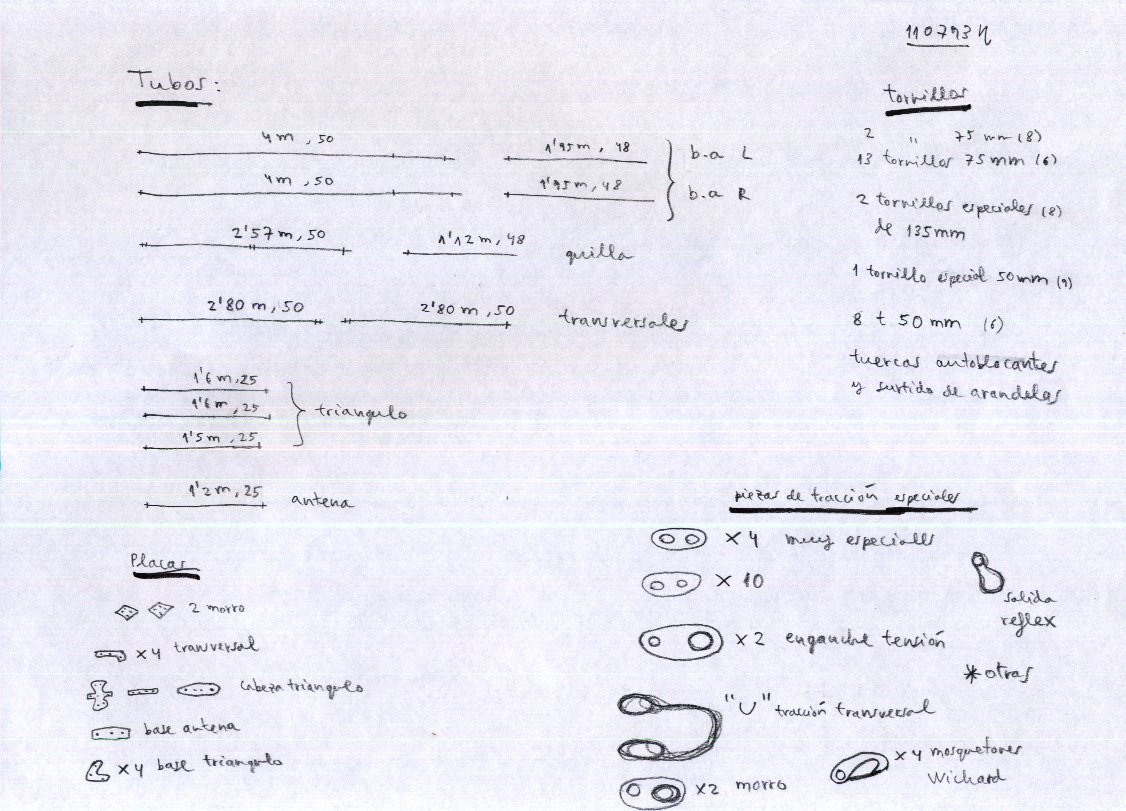 110793 N
Tubos:
4m, 50
1'95m, 48
b.a L
4m, 50
1'95m, 48
b.a R
2'57m, 50
1'12m, 48
quilla
2'80 m, 50
2'80 m, 50
transversales
1'6 m, 25
1'6 m, 25
triangulo
1'5 m, 25
1'2 m, 25
antena
Placas
2 morro
x4 tranversal
cabeza triangulo
base antena
x4 base triangulo
tornillos
2 " 75 mm (8)
13 tornillos 75mm (6)
2 tornillos especiales (8)
de 135mm
1 tornillo especial 50mm (9)
8 t 50 mm (6)
tuercas autoblocantes
y surtido de arandelas
piezas de tracción especiales
x4 muy especialls
x 10
salida
reflex
x2 enganche tensión
* otras
"U" tracción transversal
x4 mosquetones
Wichard
x2 morro